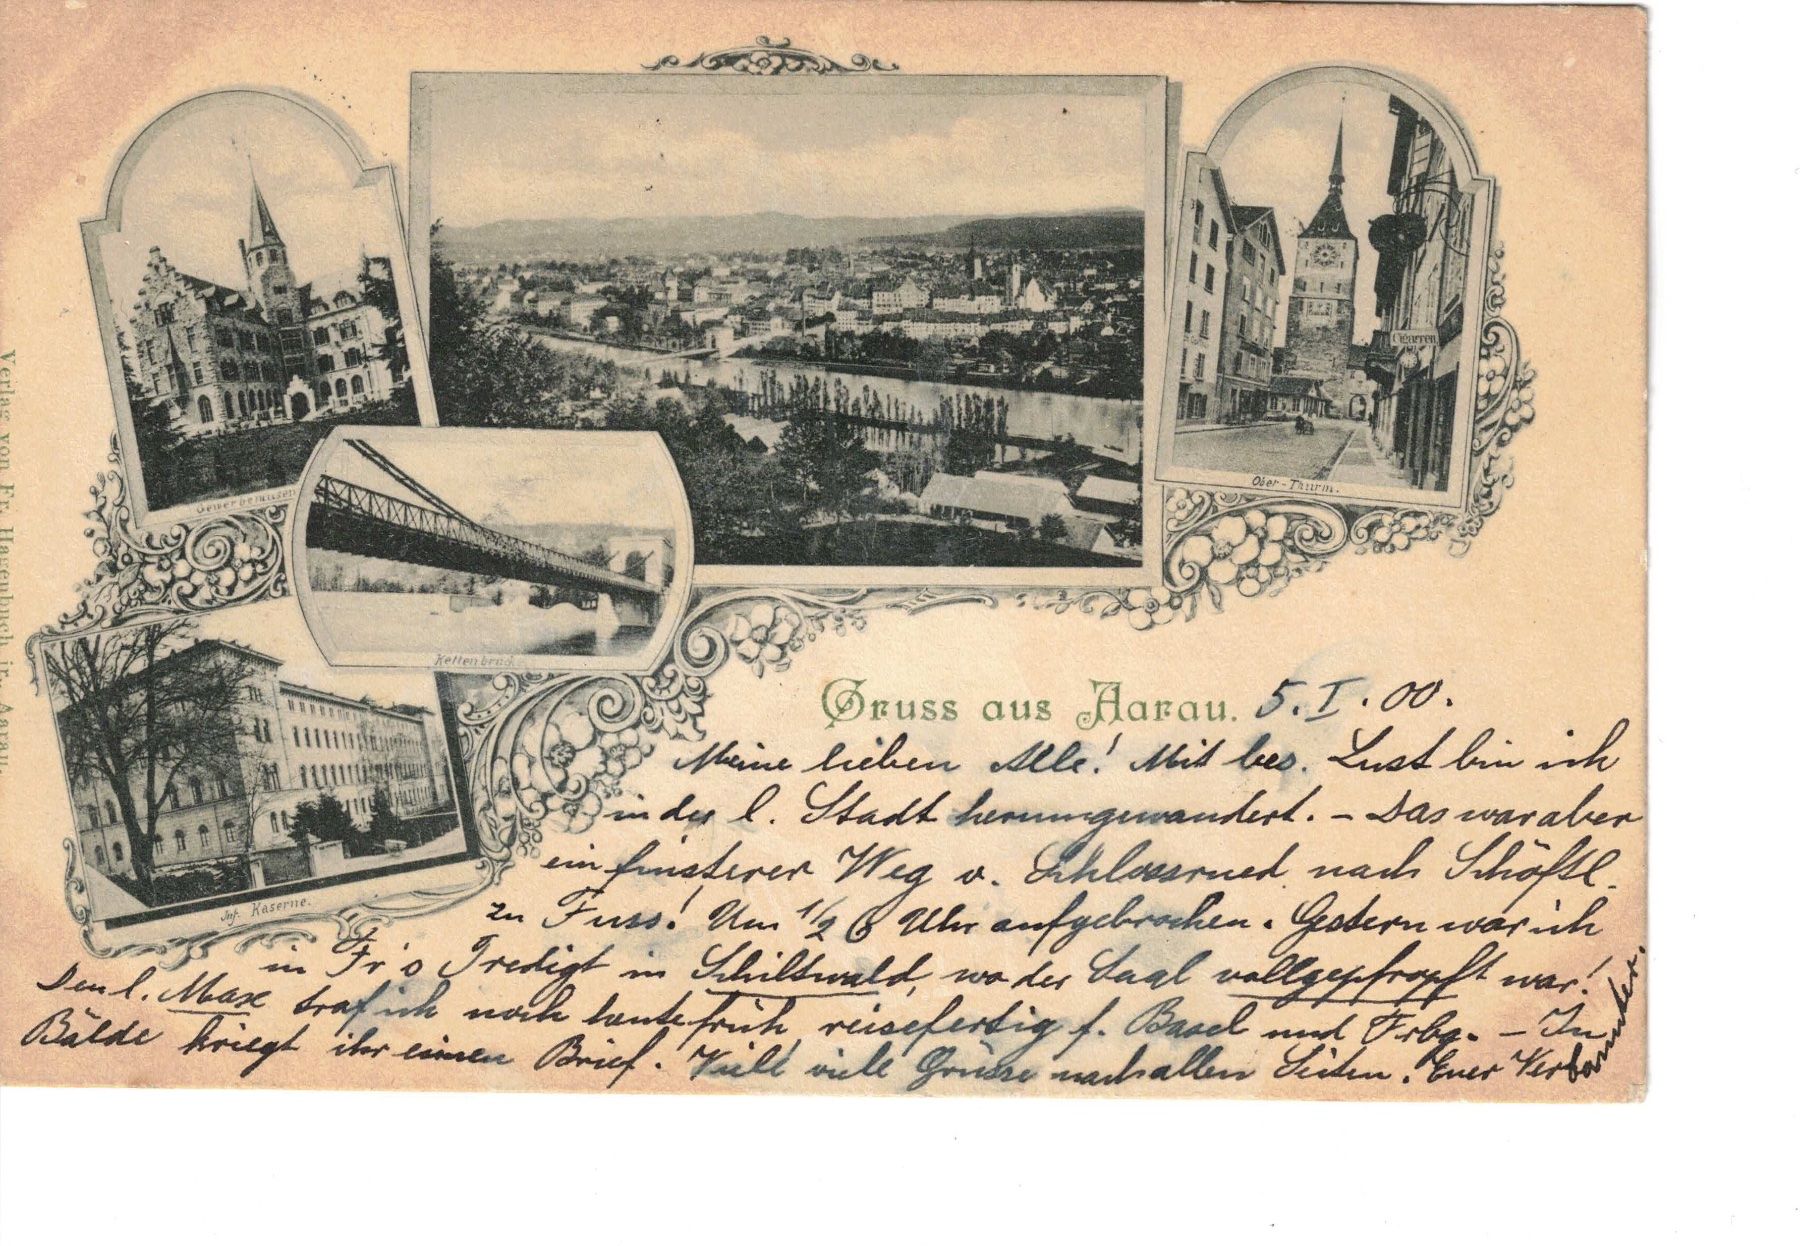 Gewerbemuseum
Ober-Thurm.
Cigarren
Kettenbrücke
Inf. Kaserne.
Verlag von Fr. Hagenbuch jr., Aarau.
Gruss aus Aarau. 5. I. 00.
Meine lieben Alle! Mit bes. Lust bin ich
in der l. Stadt herumgewandert. – Das war aber
ein finsterer Weg v. Schlossrued nach Schöftl.
zu Fuss! Um 1/2 6 Uhr aufgebrochen. Gestern war ich
in Fr's Predigt in Schiltwald, wo der Saal vollgepfropft war!
Den l. Max traf ich noch heute früh, reisefertig f. Basel und Frbg. – In
Bälde kriegt ihr einen Brief. Viele viele Grüsse nach allen Seiten. Euer Verbannter.